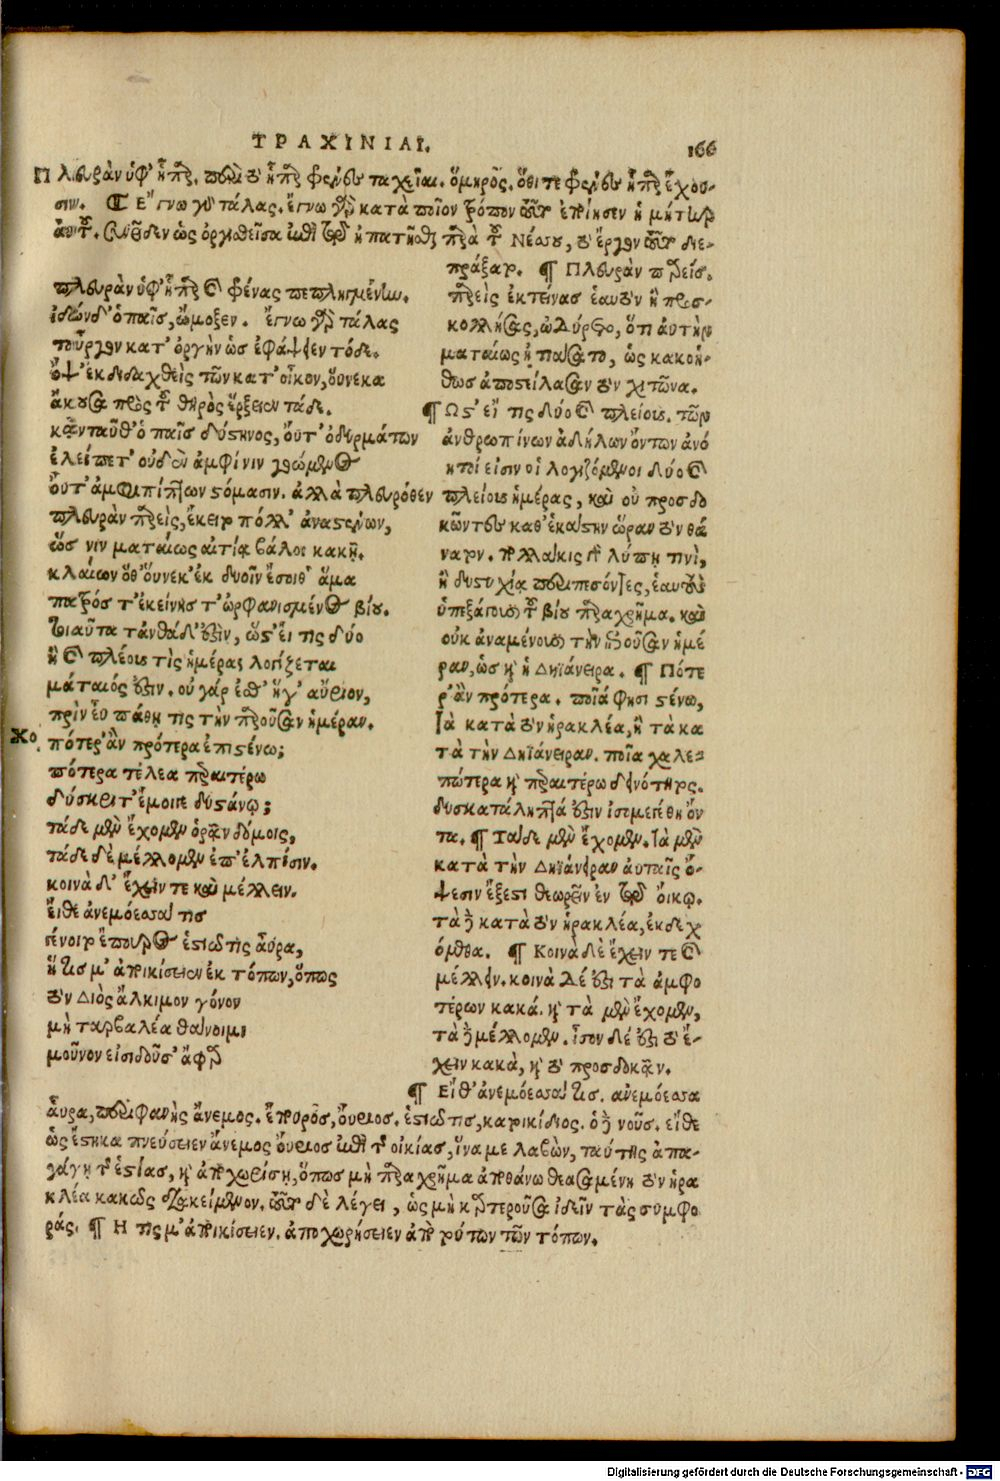 ΤΡΑΧΙΝΙΑΙ.
166
Πλευρὰν ὑφ' ἧπαρ. περὶ τὸ ἧπαρ φρένας ταχεῖαι. ὅμηρος. ὅθι τε φρένας ἧπαρ ἔχου-
σιν. Ἔγνω γὰρ τάλας. ἔγνω γὰρ κατὰ ποῖον τρόπον τοῦτο ἐποίησεν ἡ μήτηρ
αὐτοῦ. ὡς ὀργισθεῖσα ἐπὶ τῷ ἠπατῆσθαι παρὰ τοῦ Νέσσου, τὸ ἔργον τοῦτο διε-
πράξατο. ¶ Πλευρὰν παρείς.
παρεὶς ἐκτείνας ἑαυτὸν ἢ προσ-
κολλήσας, ὠδύρετο, ὅτι αὐτὴν
ματαίως ᾐτιάσατο, ὡς κακοή-
θως ἀποστείλασαν τὸν χιτῶνα.
πλευρὰν ὑφ' ἧπαρ καὶ φένας πεπληγμένην.
ἰδὼν δ' ὁ παῖς, ᾤμωξεν. ἔγνω γὰρ τάλας
τοὖργον κατ' ὀργὴν ὡς ἐφάψειεν τόδε.
ὄψ' ἐκδιδαχθεὶς τῶν κατ' οἶκον, οὕνεκα
ἄκουσα πρὸς τοῦ θηρὸς ἔρξειεν τάδε.
κἀνταῦθ' ὁ παῖς δύστηνος, οὔτ' ὀδυρμάτων
ἐλείπετ' οὐδὲν ἀμφί νιν γοώμενος
οὔτ' ἀμφιπίπτων στόμασιν. ἀλλὰ πλευρόθεν
πλευρὰν παρεὶς, ἔκειτο πόλλ' ἀναστένων,
ὥς νιν ματαίως αἰτίᾳ βάλοι κακῇ.
κλαίων ὅθ' οὕνεκ' ἐκ δυοῖν ἔσοιθ' ἅμα
πατρός τ' ἐκείνης τ' ὠρφανισμένος βίου.
τοιαῦτα τἀνθάδ' ἐστὶν, ὥστ' εἴ τις δύο
ἢ καὶ πλέους τὶς ἡμέρας λογίζεται
μάταιός ἐστιν. οὐ γάρ ἐσθ' ἥγ' αὔριον,
πρὶν εὖ πάθῃ τις τὴν παροῦσαν ἡμέραν.
Χο. πότερ' ἂν πρότερα ἐπιστένω;
πότερα τέλεα περαιτέρω
δύσκριτ' ἔμοιγε δυστάνῳ;
τάδε μὲν ἔχομεν ὁρᾶν δόμοις,
τάδε δὲ μέλλομεν ἐπ' ἐλπίσιν.
κοινὰ δ' ἔχειν τε καὶ μέλλειν.
εἴθε ἀνεμόεσσά τις
γένοιτο ἔπουρος ἑστιῶτις αὔρα,
ἥτις μ' ἀποικίσειεν ἐκ τόπων, ὅπως
τὸν Διὸς ἄλκιμον γόνον
μὴ ταρβαλέα θάνοιμι
μοῦνον εἰσιδοῦσ' ἄφαρ
¶ Ὥστ' εἴ τις δύο καὶ πλείους. τῶν
ἀνθρωπίνων ἀδήλων ὄντων ἀνό
ητοί εἰσιν οἱ λογιζόμενοι δύο καὶ
πλείους ἡμέρας, καὶ οὐ προσδο
κῶντες καθ' ἑκάστην ὥραν τὸν θά
νατον. πολλάκις γὰρ λύπῃ τινὶ,
ἢ δυστυχίᾳ περιπεσόντες, ἑαυτοὺς
ὑπεξάγουσι τοῦ βίου παραχρῆμα. καὶ
οὐκ ἀναμένουσι τὴν ἐπιοῦσαν ἡμέ
ραν, ὡς καὶ ἡ Δηϊάνειρα. ¶ Πότε
ρ' ἂν πρότερα. ποῖά φησι στένω,
τὰ κατὰ τὸν ἡρακλέα, ἢ τὰ κα
τὰ τὴν Δηϊάνειραν. ποῖα χαλε-
πώτερα καὶ περαιτέρω δεινότητος.
δυσκατάληπτά ἐστιν ἰσομεγέθη ὄν
τα. ¶ Τάδε μὲν ἔχομεν. τὰ μὲν
κατὰ τὴν Δηϊάνειραν αὐταῖς ὄ-
ψεσιν ἔξεστι θεωρεῖν ἐν τῷ οἴκῳ.
τὰ δὲ κατὰ τὸν ἡρακλέα, ἐκδεχ
όμεθα. ¶ Κοινὰ δὲ ἔχειν τε καὶ
μέλλειν. κοινὰ δέ ἐστι τὰ ἀμφο
τέρων κακά. καὶ τὰ μὲν ἔχομεν,
τὰ δὲ μέλλομεν. ἴσον δέ ἐστι τὸ ἔ-
χειν κακὰ, καὶ τὸ προσδοκᾶν.
¶ Εἴθ' ἀνεμόεσσά τις. ἀνεμόεσσα
αὔρα, περιφανὴς ἄνεμος. ἔπουρος, οὔριος. ἑστιῶτις, κατοικίδιος. ὁ δὲ νοῦς. εἴθε
ὡς ἕστηκα πνεύσειεν ἄνεμος οὔριος ἐπὶ τῆς οἰκίας, ἵνα με λαβὼν, ταύτης ἀπα-
γάγῃ τῆς ἑστίας, καὶ ἀποχωρίσῃ, ὅπως μὴ παραχρῆμα ἀποθάνω θεασαμένη τὸν ἡρα
κλέα κακῶς διακείμενον. τοῦτο δὲ λέγει, ὡς μὴ καρτεροῦσα ἰδεῖν τὰς συμφο
ράς. ¶ Ἥ τις μ' ἀποικίσειεν. ἀποχωρήσειεν ἀπὸ τούτων τῶν τόπων.
Digitalisierung gefördert durch die Deutsche Forschungsgemeinschaft - DFG